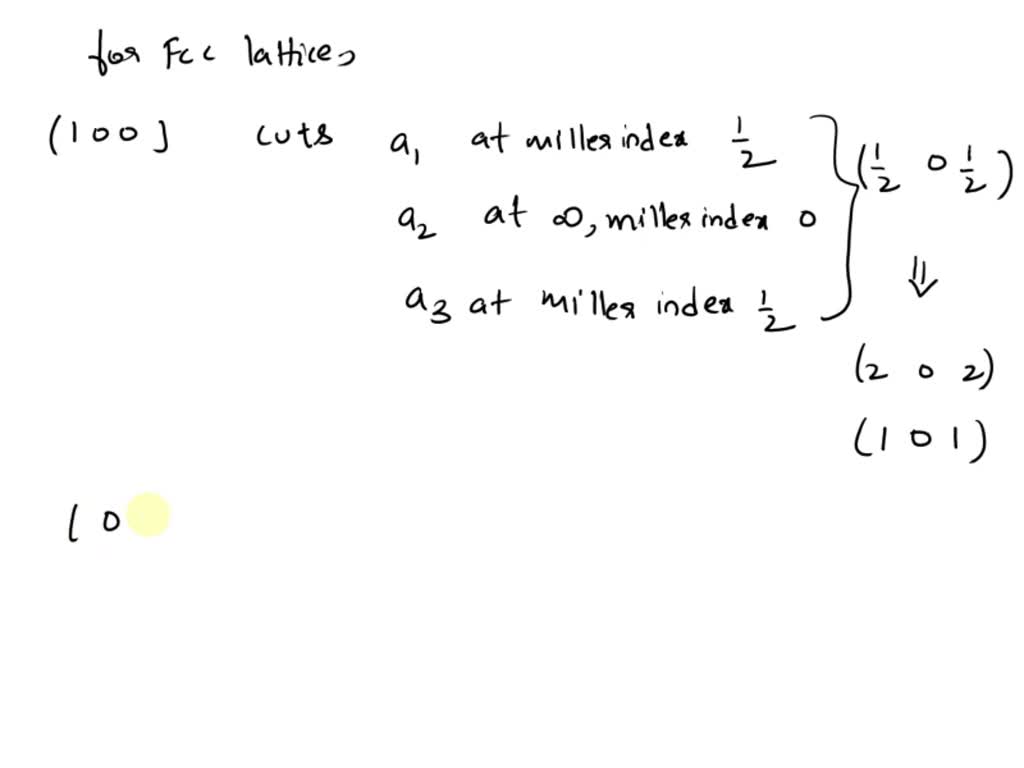 for Fcc lattices
(100] cuts a₁ at miller index 1/2
a₂ at ∞, miller index 0
a₃ at miller index 1/2
(1/2 0 1/2)
⇓
(2 0 2)
(1 0 1)
( 0